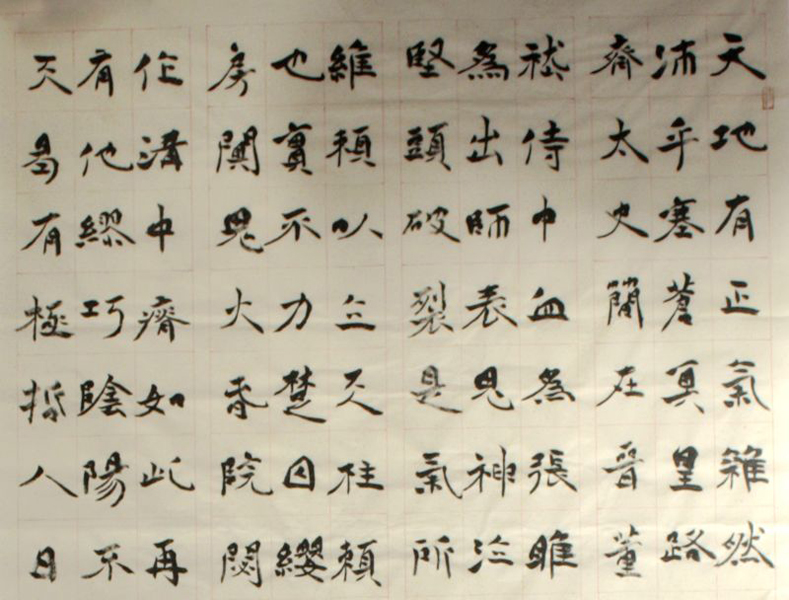 天地有正氣雜然
沛乎塞蒼冥皇路
齊太史簡在晉董
嵇侍中血為張睢
為出師表鬼神泣
竪頭破裂是氣所
維賴以立天柱賴
也實不力楚囚纓
房闃鬼火春院閟
作溝中瘠如此再
有他繆巧陰陽不
天曷有極哲人日